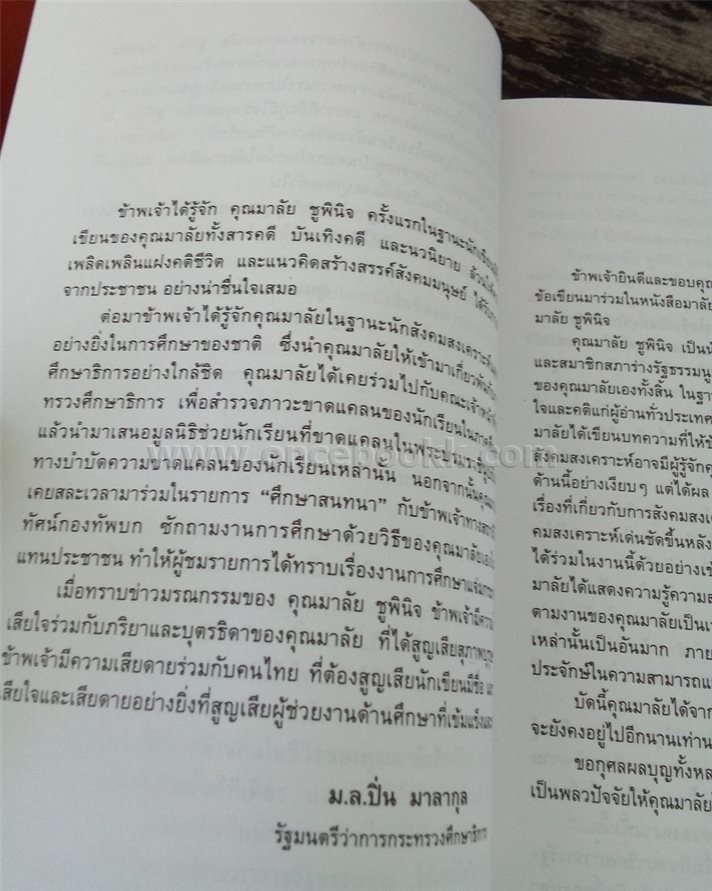 ข้าพเจ้าได้รู้จัก คุณมาลัย ชูพินิจ ครั้งแรกในฐานะนักเขียน
เขียนของคุณมาลัยทั้งสารคดี บันเทิงคดี และนวนิยาย ล้วน
เพลิดเพลินแฝงคติชีวิต และแนวคิดสร้างสรรค์สังคมมนุษย์ ได้รับ
จากประชาชน อย่างน่าชื่นใจเสมอ
ต่อมาข้าพเจ้าได้รู้จักคุณมาลัยในฐานะนักสังคมสงเคราะห์
อย่างยิ่งในการศึกษาของชาติ ซึ่งนำคุณมาลัยให้เข้ามาเกี่ยวพัน
ศึกษาธิการอย่างใกล้ชิด คุณมาลัยได้เคยร่วมไปกับคณะเจ้าหน้าที่
ทรวงศึกษาธิการ เพื่อสำรวจภาวะขาดแคลนของนักเรียนในภาค
แล้วนำมาเสนอมูลนิธิช่วยนักเรียนที่ขาดแคลนในพระบรมราชินูปถัมภ์
ทางบำบัดความขาดแคลนของนักเรียนเหล่านั้น นอกจากนั้นคุณ
เคยสละเวลามาร่วมในรายการ “ศึกษาสนทนา” กับข้าพเจ้าทาง
ทัศน์กองทัพบก ซักถามงานการศึกษาด้วยวิธีของคุณมาลัย
แทนประชาชน ทำให้ผู้ชมรายการได้ทราบเรื่องงานการศึกษา
เมื่อทราบข่าวมรณกรรมของ คุณมาลัย ชูพินิจ ข้าพเจ้ามีความ
เสียใจร่วมกับภริยาและบุตรธิดาของคุณมาลัย ที่ได้สูญเสีย
ข้าพเจ้ามีความเสียดายร่วมกับคนไทย ที่ต้องสูญเสียนักเขียนมีชื่อ
เสียใจและเสียดายอย่างยิ่งที่สูญเสียผู้ช่วยงานด้านศึกษาที่เข้มแข็ง
ม.ล.ปิ่น มาลากุล
รัฐมนตรีว่าการกระทรวงศึกษาธิการ
ข้าพเจ้ายินดีและขอบคุณ
ข้อเขียนมาร่วมในหนังสือมาลัย
มาลัย ชูพินิจ
คุณมาลัย ชูพินิจ เป็น
และสมาชิกสภาร่างรัฐธรรมนูญ
ของคุณมาลัยเองทั้งสิ้น ในฐานะ
ใจและคติแก่ผู้อ่านทั่วประเทศ
มาลัยได้เขียนบทความที่ให้
สังคมสงเคราะห์อาจมีผู้รู้จัก
ด้านนี้อย่างเงียบๆ แต่ได้ผล
เรื่องที่เกี่ยวกับการสังคมสงเคราะห์
คมสงเคราะห์เด่นชัดขึ้นหลัง
ได้ร่วมในงานนี้ด้วยอย่าง
มาลัยได้แสดงความรู้ความ
ตามงานของคุณมาลัยเป็น
เหล่านั้นเป็นอันมาก ภาย
ประจักษ์ในความสามารถ
บัดนี้คุณมาลัยได้จาก
จะยังคงอยู่ไปอีกนานเท่า
ขอกุศลผลบุญทั้งหลาย
เป็นพลวปัจจัยให้คุณมาลัย